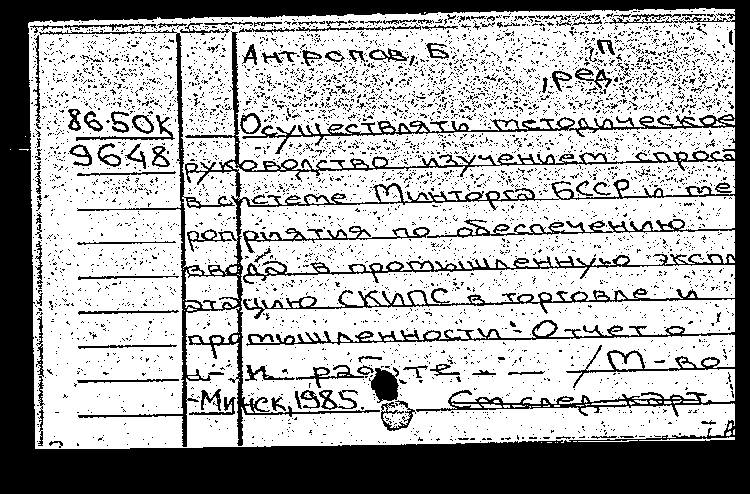 Антропов, Б п
,ред.
86-50К Осуществлять методическое
9648 руководство изучением спроса
в системе Минторга БССР и ме
роприятия по обеспечению
ввода в промышленную экспл
атацию СКИПС в торговле и
промышленности: Отчет о
н.-и. работе / М-во
-Минск, 1985. См. след. карт.